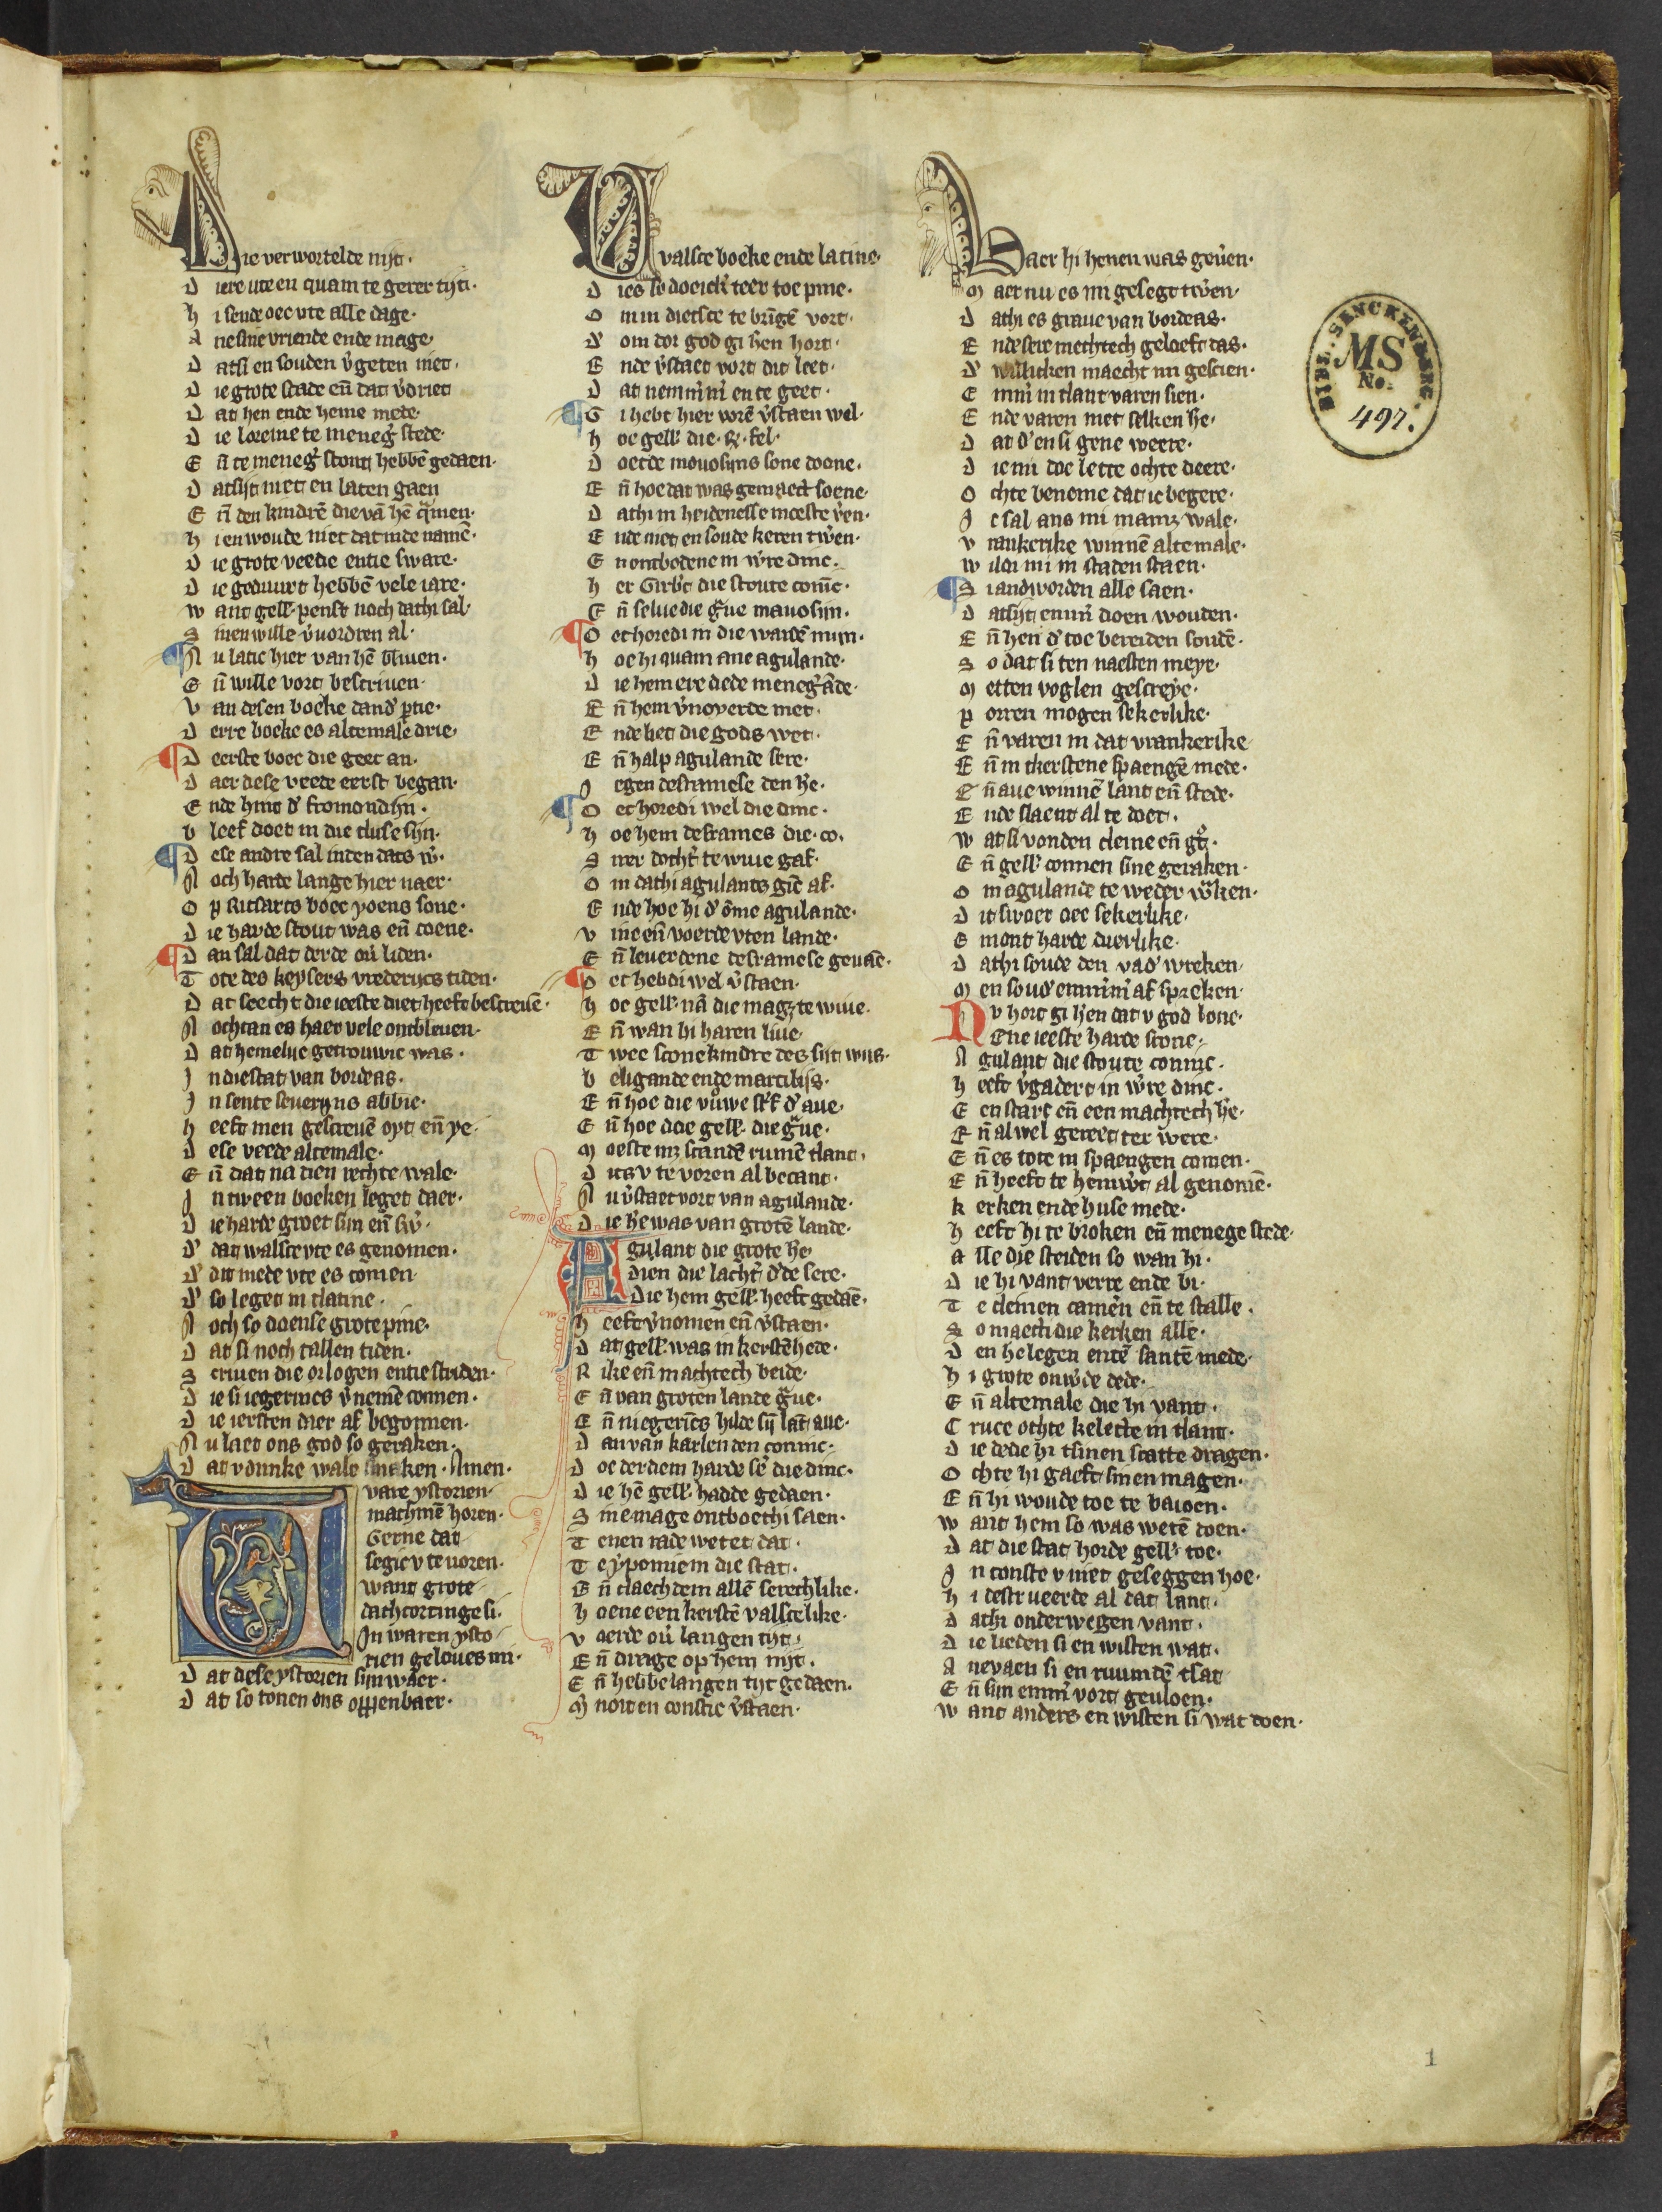 Die verwortelde nijt.
D iere ute en quam te gerer tijt.
h i sende oec vte alle dage.
A ne sine vriende ende mage.
D at si en souden v̓geten niet.
D ie grote scade en̄ dat v̓driet
D at hen ende heme mede.
D ie loreine te meneg̓ stede.
E n̄ te meneg̓ stont hebbē gedaen.
D at sijt niet en laten gaen
E n̄ den kindrē die vā hē q̓men.
h i en woude niet dat inde namē.
D ie grote veede entie sware.
D ie geduuert hebbē vele iare.
W ant gell̓. penst noch dat hi sal.
S inen wille v̓uordren al.
¶ N u latic hier van hē bliuen.
E n̄ wille vort bescriuen.
V an desen boeke dand̓ ptie.
D erre boeke es altemale drie.
¶ D eerste boec die geet an.
D aer dese veede eerst began.
E nde hint d̓ fromondijn.
b leef doet in die cluse sijn.
¶ D ese andre sal inden dats w̓.
N och harde lange hier naer.
O p Ritsarts boec yoens sone.
D ie harde stout was en̄ coene.
¶ D an sal dat derde ou̓ liden.
T ote des keysers vrederijcs tiden.
D at seecht die ieeste diet heeft bescreuē.
N ochtan es haer vele ontbleuen.
D at hemeluc getrouwic was.
I n die stat van bordeas.
I n sente seuerijns abbie.
h eeft men gescreuē oyt en̄ ye.
D ese veede altemale.
E n̄ dat na dien rechte wale.
I n tween boeken leget daer.
D ie harde groet sijn en̄ sw̓.
D̓ dat walsce vte es genomen.
D̓ dit mede vte es comen.
D̓ so leget in tlatine.
N och so doense grote pine.
D at si noch tallen tiden.
S criuen die orlogen entie striden.
D ie si iegerincs v̓nemē connen.
D ie iersten dier af begonnen.
N u laet ons god so geraken.
D at v dunke wale smaken. Amen.
Uare ystorien
machmē horen.
Gerne dat
segic v te uoren.
want grote
dachcortinge si.
In waren ysto
rien geloues mi.
D at dese ystorien sijn waer.
D at so tonen ons oppenbaer.
Dvalsce boeke ende latine.
D ies so doe ick̓ teer toe pine.
O m in dietsce te brīgē vort.
D̓ om dor god gi h̓en hort.
E nde v̓staet vort dit leet.
D at nemm̓m̓ en te geet.
¶ G i hebt hier vorē v̓staen wel.
h oe gell̓. die . R . fel.
D oerde mouosijns sone doene.
E n̄ hoe dat was gemaect soene.
D at hi in heidenesse moeste v̓en.
E nde niet en soude keren tw̓en.
E n ontbodene in w̓re dinc.
h er Girb̓t die stoute conīc.
E n̄ selue die g̓ue mauosijn.
¶ O ec horedi in die wardē mijn.
h oe hi quam ane agulande.
D ie hem ere dede meneg̓ āde.
E n̄ hem v̓noyerde met.
E nde liet die gods wet.
E n̄ halp agulande sere.
J egen desramese den h̓e.
¶ O ec horedi wel die dinc.
h oe hem desrames die . co.
S iner docht̓ te wiue gaf.
O m dat hi agulants gīc af.
E nde hoe hi d̓ ōme agulande.
V ine en̄ voerde vten lande.
E n̄ leuerdene desramese geuaē.
¶ O ec hebdi wel v̓staen.
h oe gell̓. nā die magz te wiue.
E n̄ wan bi haren liue
T wee scone kindre des sijt wijs.
b eligande ende marcilijs.
E n̄ hoe die vu̓we st̓f d̓ aue.
E n̄ hoe doe gell̓. die g̓ue.
M oeste mz scandē rumē tlant.
D it es v te voren al becant.
N u v̓staet vort van agulande.
D ie h̓e was van grotē lande.
Agulant die grote h̓e
dien die lacht̓ d̓de sere.
Die hem gell̓. heeft gedaē.
h eeft v̓nomen en̄ v̓staen.
D at gell̓. was in kerstēhede.
R ike en̄ machtech beide.
E n̄ van groten lande g̓ue.
E n̄ niegerīcs hilde sij lāt aue.
D an van karlen den coninc.
D oe derdem harde se̓ die dinc.
D ie hē gell̓. hadde gedaen.
S ine mage ontboet hi saen.
T enen rade wetet dat.
T e ypomiem die stat.
E n̄ claechdem allē serechlike.
h oene een kerstē valscelike.
V oerde ou̓ langen tijt.
E n̄ drage op hem nijt.
E n̄ hebbe langen tijt gedaen.
M̓ noit en constic v̓staen.
Daer hi henen was geu̓en.
M aer nu es mi geseget tw̓en
D at hi es graue van bordeas.
E nde sere mechtech geloeft das.
D̓ willicken maecht mi gescien.
E mm̓ in tlant varen sien.
E nde varen met selken h̓e.
D at d̓ en si gene weere.
D ie mi doe lette ochte deere.
O chte beneme dat ic begere.
I c sal ans mi mamz wale.
V rankerike winnē altemale.
W ildi mi in staden staen.
¶ S i andworden alle saen.
D at sijt em̄m̓ doen wouden.
E n̄ hen d̓ toe bereiden soudē.
S o dat si ten naesten meye.
M etten voglen gescreye.
P orren mogen sekerlike.
E n̄ varen in dat vrankerike
E n̄ in tkerstene spaengē mede.
E n̄ aue winnē lant en̄ stede.
E nde slaent al te doet.
W at si vonden cleine en̄ g̓t.
E n̄ gell̓. connen sine geraken.
O m agulande te weder w̓ken.
D it swoer oec sekerlike.
E mont harde dierlike.
D at hi soude den vad̓ wreken.
M en soud̓ em̄m̓m̓ af spreken.
Nv hort gi h̓en dat v god lone.
Ene ieeste harde scone.
A gulant die stoute coninc.
h eeft v̓gadert in w̓re dinc.
E en starc en̄ een machtech h̓e.
E n̄ al wel gereet ter were.
E n̄ es tote in spaengen comen.
E n̄ heeft te hemw̓t al genomē.
K erken ende huse mede.
h eeft hi te broken en̄ menege stede.
A lle die steiden so wan hi.
D ie hi vant verre ende bi.
T e cleinen camēn en̄ te stalle.
S o maecti die kerken alle.
D en helegen entē santē mede.
h i grote onw̓de dede.
E n̄ altemale die hi vant.
C ruce ochte kelecte in tlant.
D ie dede hi tsinen scatte dragen.
O chte hi gaeft sinen magen.
E n̄ hi woude toe te baioen.
W ant hem so was wetē doen.
D at die stat horde gell̓. toe.
I n conste v niet geseggen hoe.
h i destrueerde al dat lant.
D at hi onderwegen vant.
D ie lieden si en wisten wat.
A nevaen si en ruumdē tsat
E n̄ sijn emm̓ vort geuloen.
W ant anders en wisten si wat doen.
BIBL. SENCKENBERG.
MS
No.
497.
1